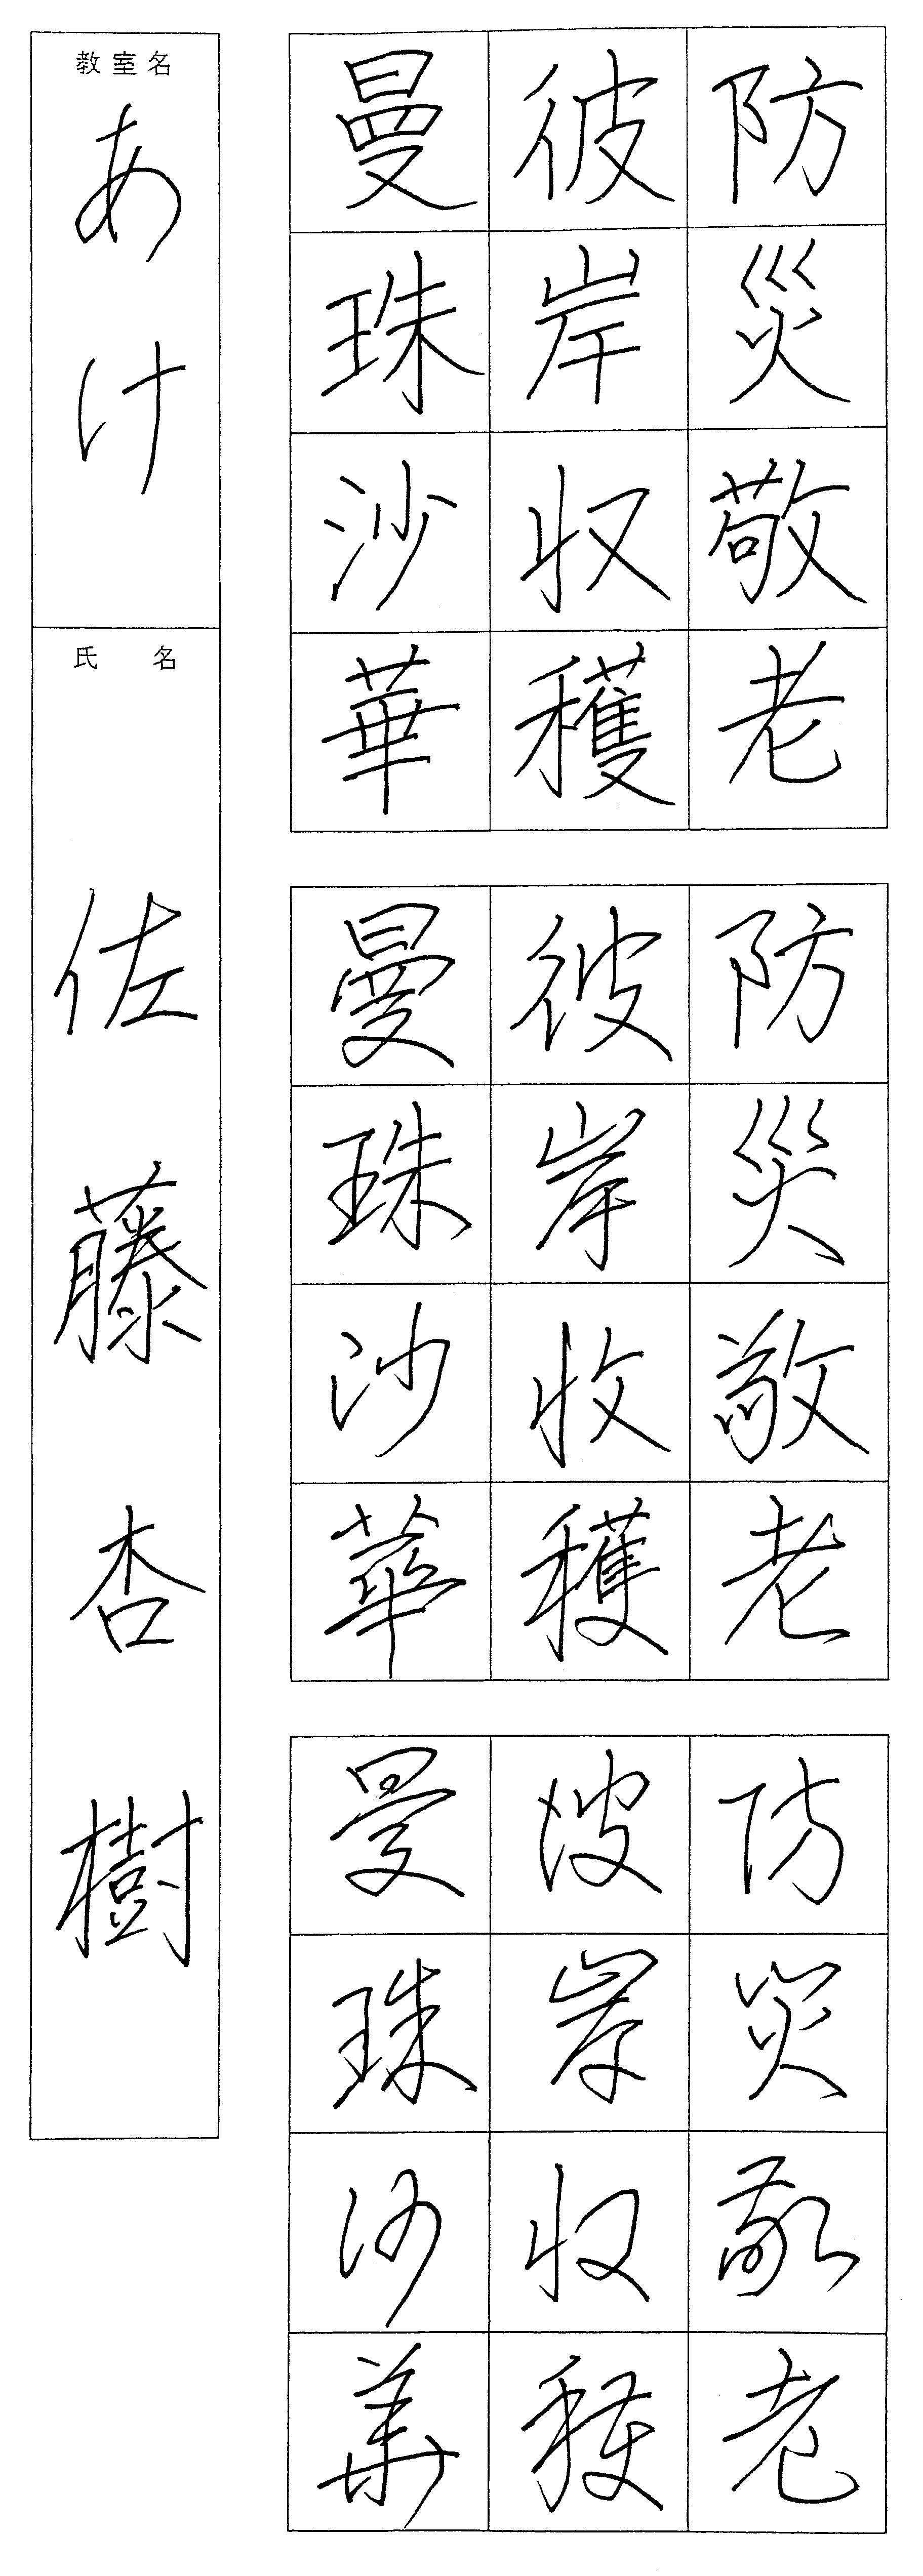 防災敬老
彼岸収穫
曼珠沙華
防災敬老
彼岸収穫
曼珠沙華
防災敬老
彼岸収穫
曼珠沙華
教室名
あけ
氏名
佐藤杏樹